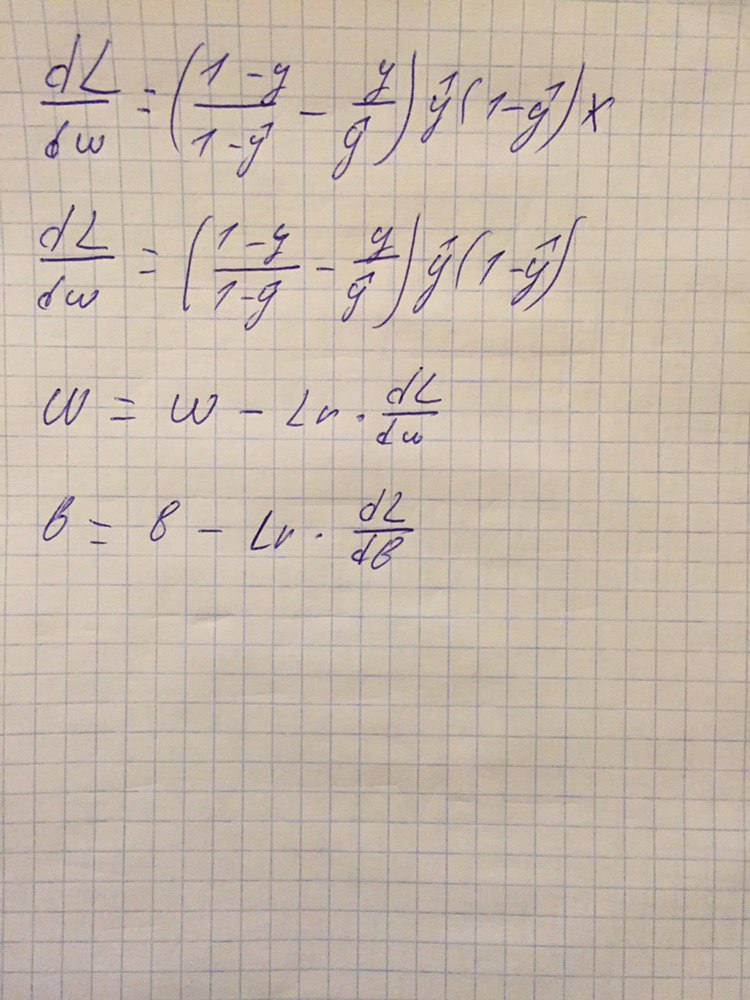 dL/dw = ((1-y)/(1-ŷ) - y/ŷ) ŷ(1-ŷ) x
dL/dw = ((1-y)/(1-y) - y/ŷ) ŷ(1-ŷ)
w = w - Lr · dL/dw
b = b - Lr · dL/db